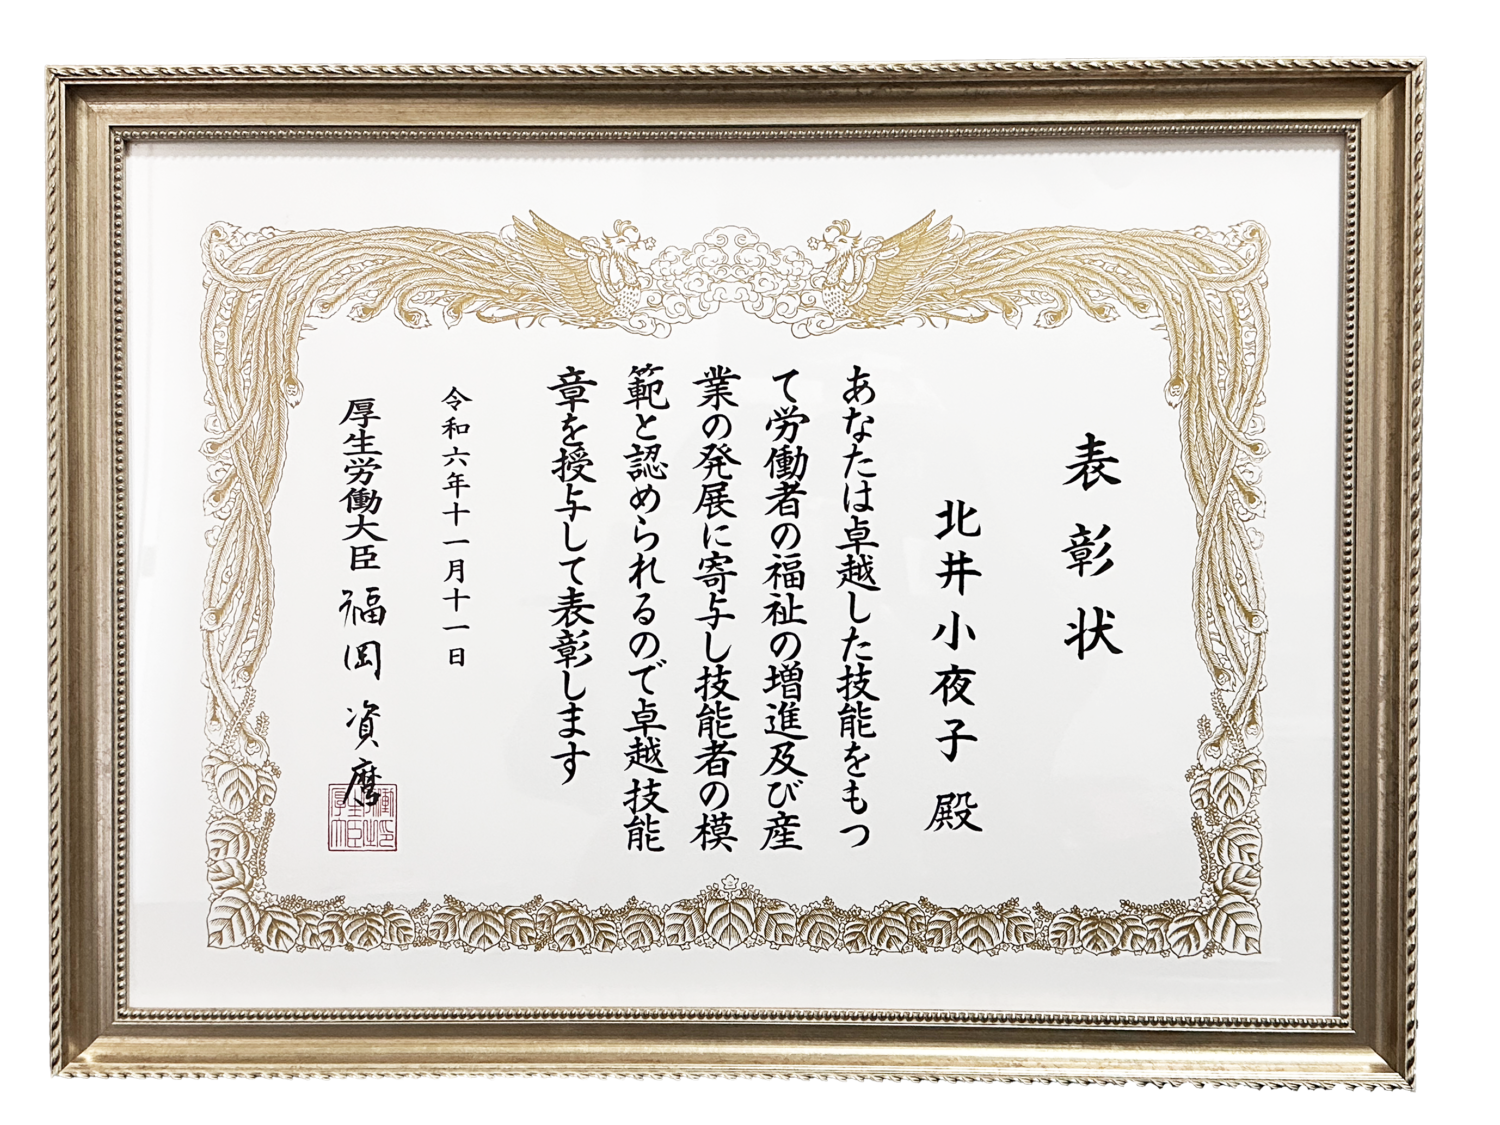 表彰状
北井小夜子 殿
あなたは卓越した技能をもつ
て労働者の福祉の増進及び産
業の発展に寄与し技能者の模
範と認められるので卓越技能
章を授与して表彰します
令和六年十一月十一日
厚生労働大臣 福岡資麿